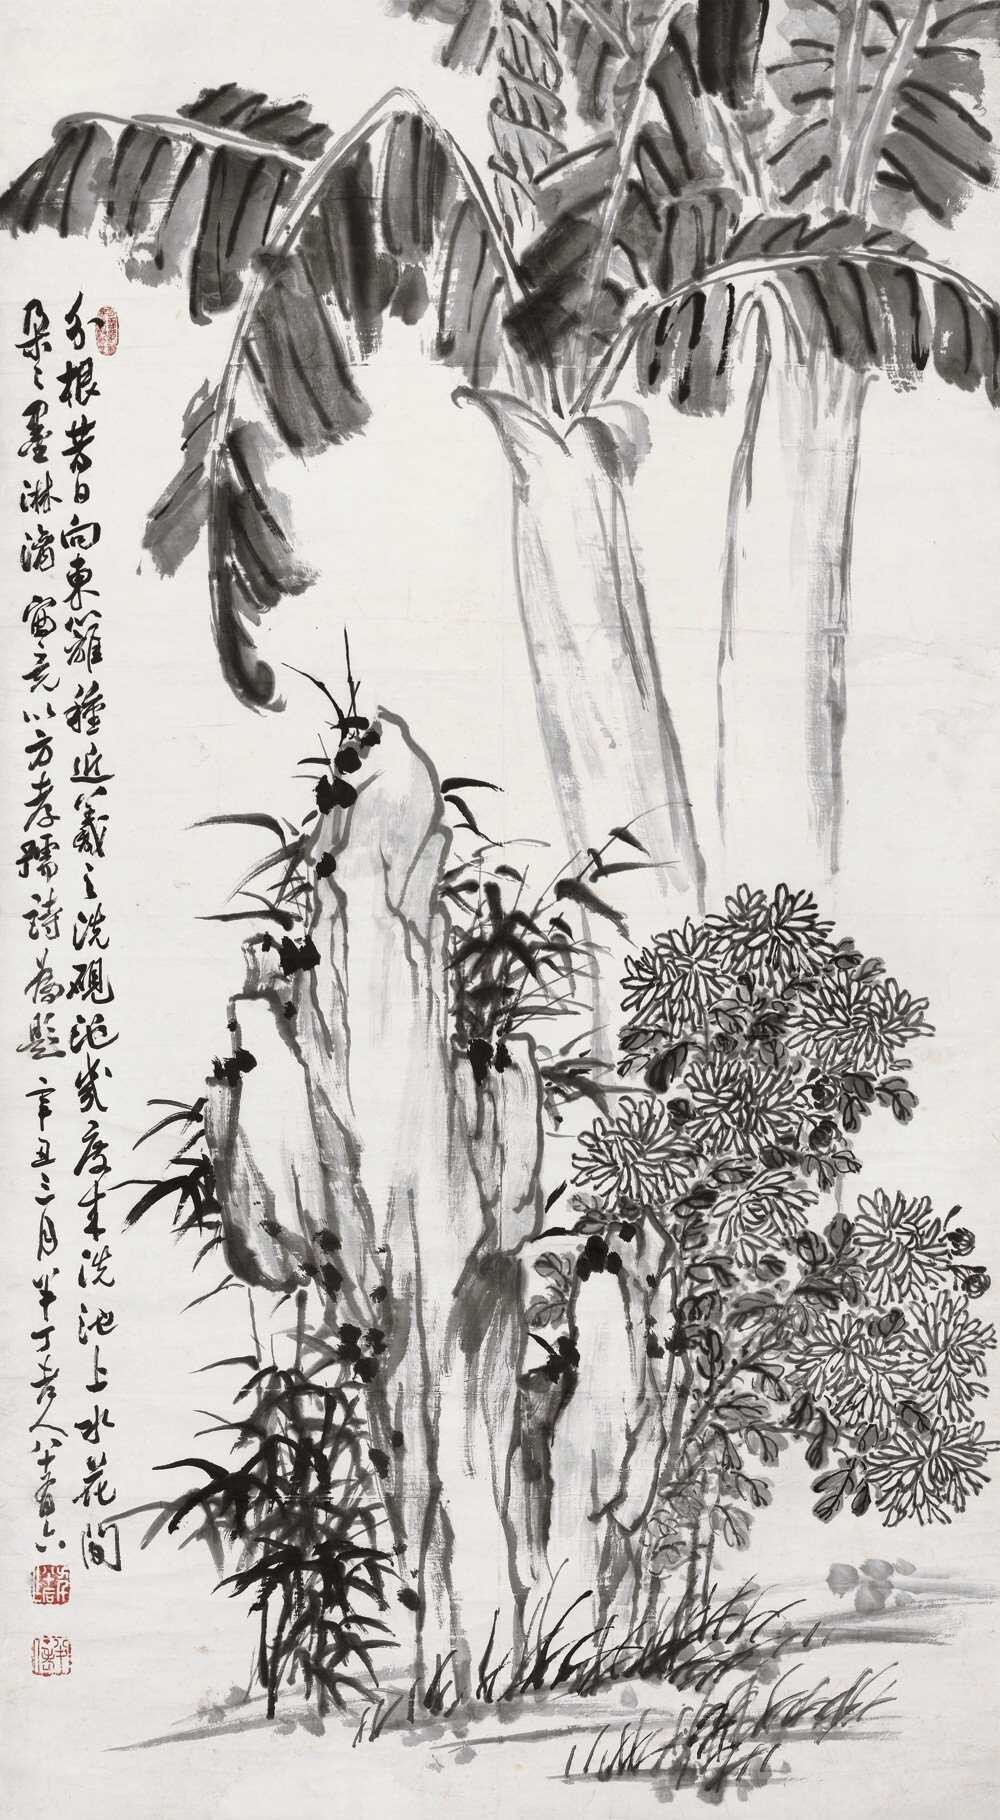 分根昔日向東籬種近羲之洗硯池幾度來洗池上水花間
朵之墨淋漓 寫竟以方孝孺詩為題 辛丑三月半丁老人八十有六